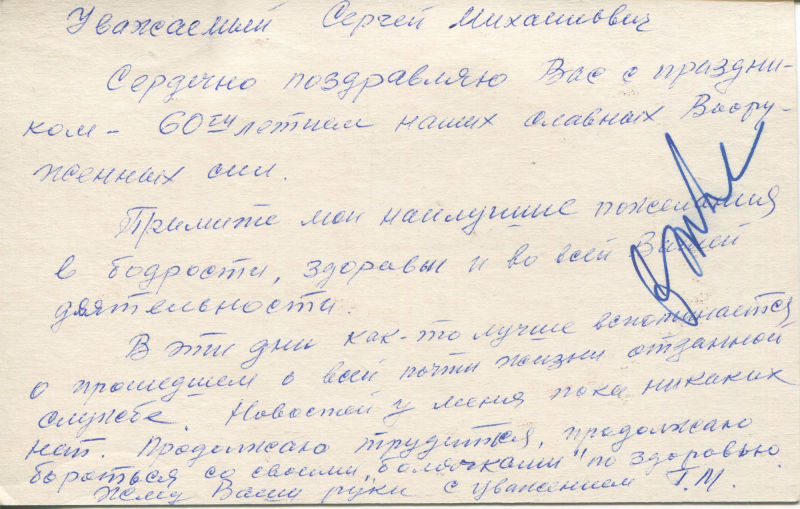 Уважаемый Сергей Михайлович
Сердечно поздравляю Вас с праздни-
ком - 60ти летием наших славных Воору-
женных сил.
Примите мои наилучшие пожелания
в бодрости, здоровьи и во всей Вашей
деятельности.
В эти дни как-то лучше вспоминается
о прошедшем о всей почти жизни отданной
службе. Новостей у меня пока никаких
нет. Продолжаю трудится, продолжаю
бороться со своими "болячками" по здоровью.
Жму Ваши руки с уважением Г.М.